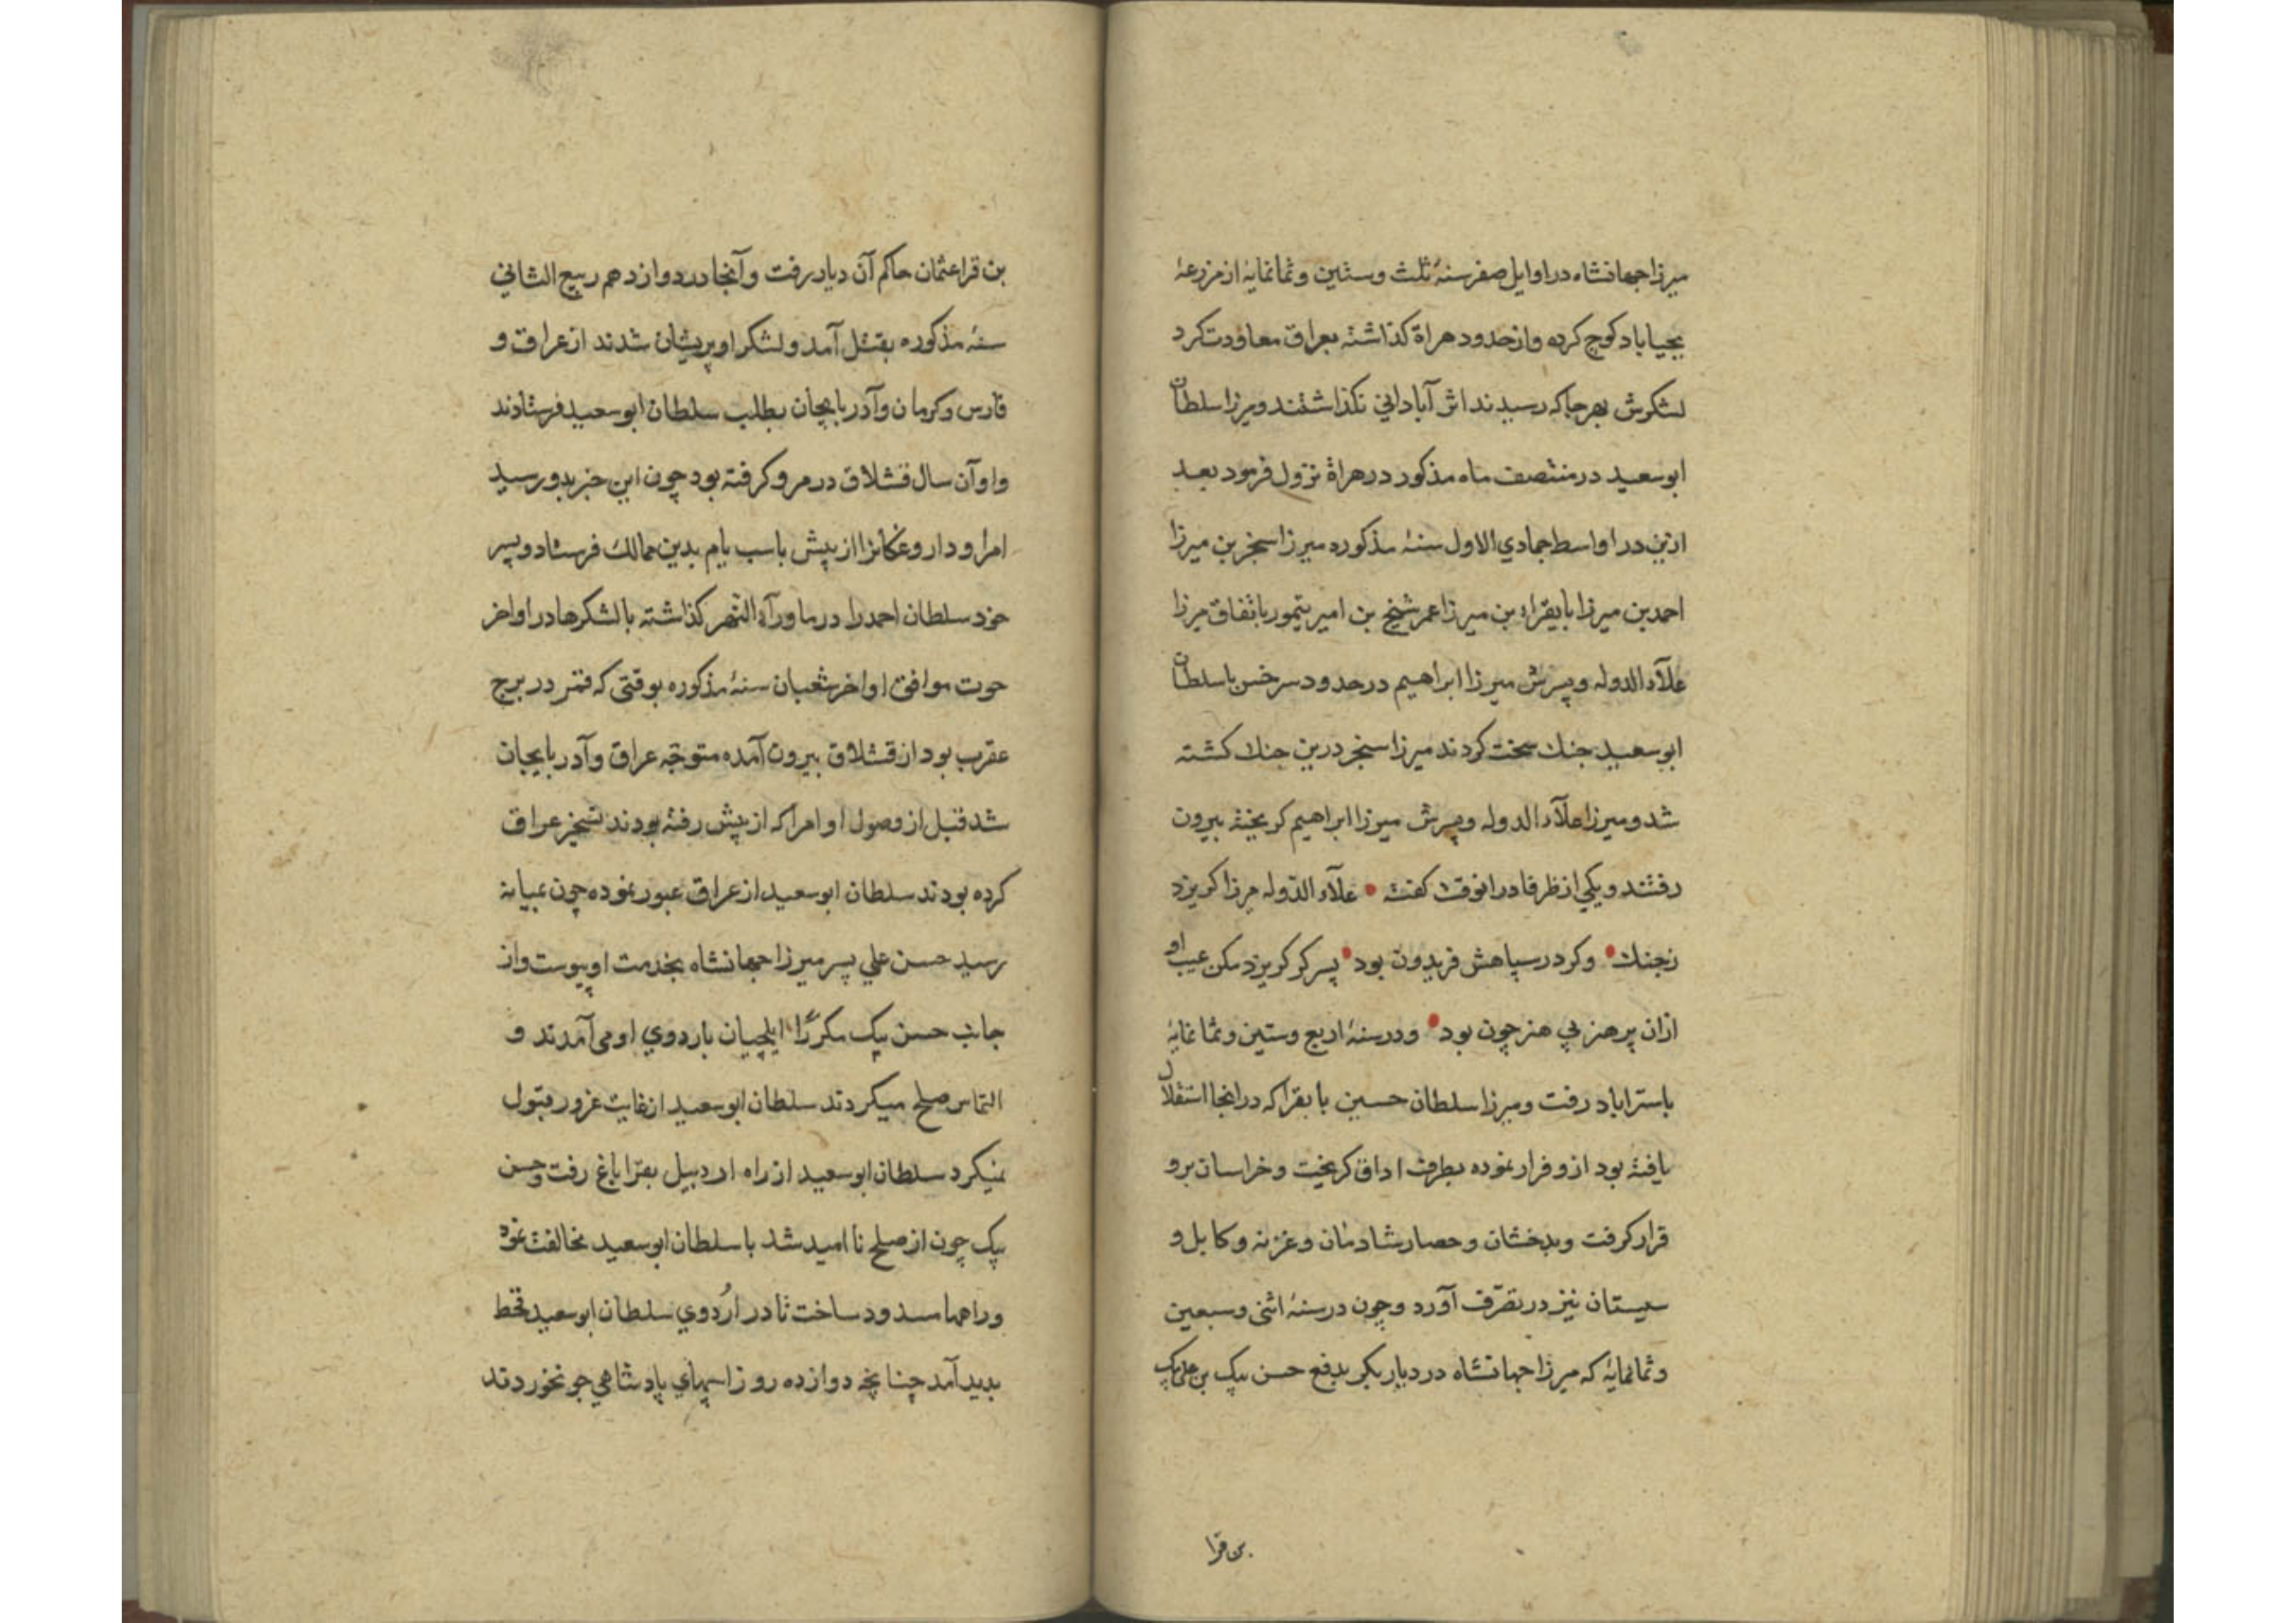 میرزا جهانشاه در اوایل صفر سنهٔ ثلث وستین وثمانمایهٔ از مزرعهٔ
یحیاباد کوچ کرده واز حدود هراة کذاشته بعراق معاودت کرد
لشکرش بهر جا که رسیدند اثر آباداني نکذاشتند ومیرزا سلطان
ابوسعید در منتصف ماه مذکور در هراة نزول فرمود بعد
ازین در اواسط جمادي الاول سنهٔ مذکوره میرزا سنجر بن میرزا
احمد بن میرزا بایقراء بن میرزا عمر شیخ بن امیر تیمور باتفاق میرزا
علآء الدوله وپسرش میرزا ابراهیم در حدود سرخس با سلطان
ابوسعید جنك سخت کردند میرزا سنجر درین جنك کشته
شد ومیرزا علآء الدوله وپسرش میرزا ابراهیم کریخته بیرون
رفتند ویکي از ظرفا درانوقت کفته • علآء الدّوله میرزا کریزد
زجنك • وکر در سپاهش فریدون بود • پسر کر کریزد مکن عیب او
ازان پر هنر بي هنر چون بود • ودر سنهٔ اربع وستین وثمانمایهٔ
باستراباد رفت ومیرزا سلطان حسین بایقرا که درانجا استقلال
یافته بود ازو فرار نموده بطرف اداق کریخت وخراسان برو
قرار کرفت وبدخشان وحصار شادمان وغزنه وکابل و
سیستان نیز در تصرّف آورد وچون در سنهٔ اثنی وسبعین
وثمانمایهٔ که میرزا جهانشاه در دیاربکر بدفع حسن بیک بن علی بیک
بن قرا
بن قرا عثمان حاکم آن دیار رفت وآنجا در دوازدهم ربیع الثاني
سنهٔ مذکوره بقتل آمد ولشکر او پریشان شدند از عراق و
فارس وکرمان وآذربایجان بطلب سلطان ابوسعید فرستادند
واو آن سال قشلاق در مرو کرفته بود چون این خبر بدو رسید
امرا وداروغکانرا از پیش باسب یام بدین ممالك فرستاد وپسر
خود سلطان احمد را در ماورآء النّهر کذاشته با لشکرها در اواخر
حوت موافق اواخر شعبان سنهٔ مذکوره بوقتی که قمر در برج
عقرب بود از قشلاق بیرون آمده متوجّه عراق وآذربایجان
شد قبل از وصول او امرا که از پیش رفته بودند تسخیر عراق
کرده بودند سلطان ابوسعید از عراق عبور نموده چون بمیانه
رسید حسن علي پسر میرزا جهانشاه بخدمت او پیوست واز
جانب حسن بیک مکررًا ایلچیان باردوي او می آمدند و
التماس صلح میکردند سلطان ابوسعید از غایت غرور قبول
نمیکرد سلطان ابوسعید از راه اردبیل بقرا باغ رفت وحسن
بیک چون از صلح نا امید شد با سلطان ابوسعید مخالفت نمود
وراهها مسدود ساخت تا در اُردوي سلطان ابوسعید قحط
بدید آمد چنانچه دوازده روز اسپهاي پادشاهي جو نخوردند